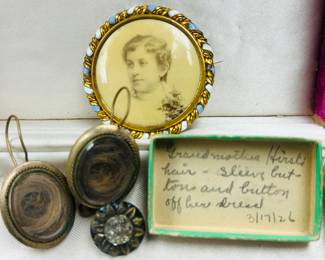 Grandmother Hirsh's
hair - Sleeve but-
tons and button
off her dress
3/17/26